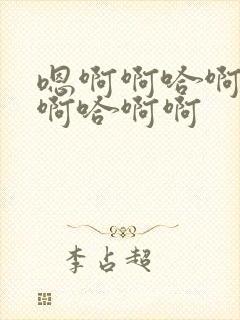 嗯啊啊哈啊
啊哈啊啊
李占超